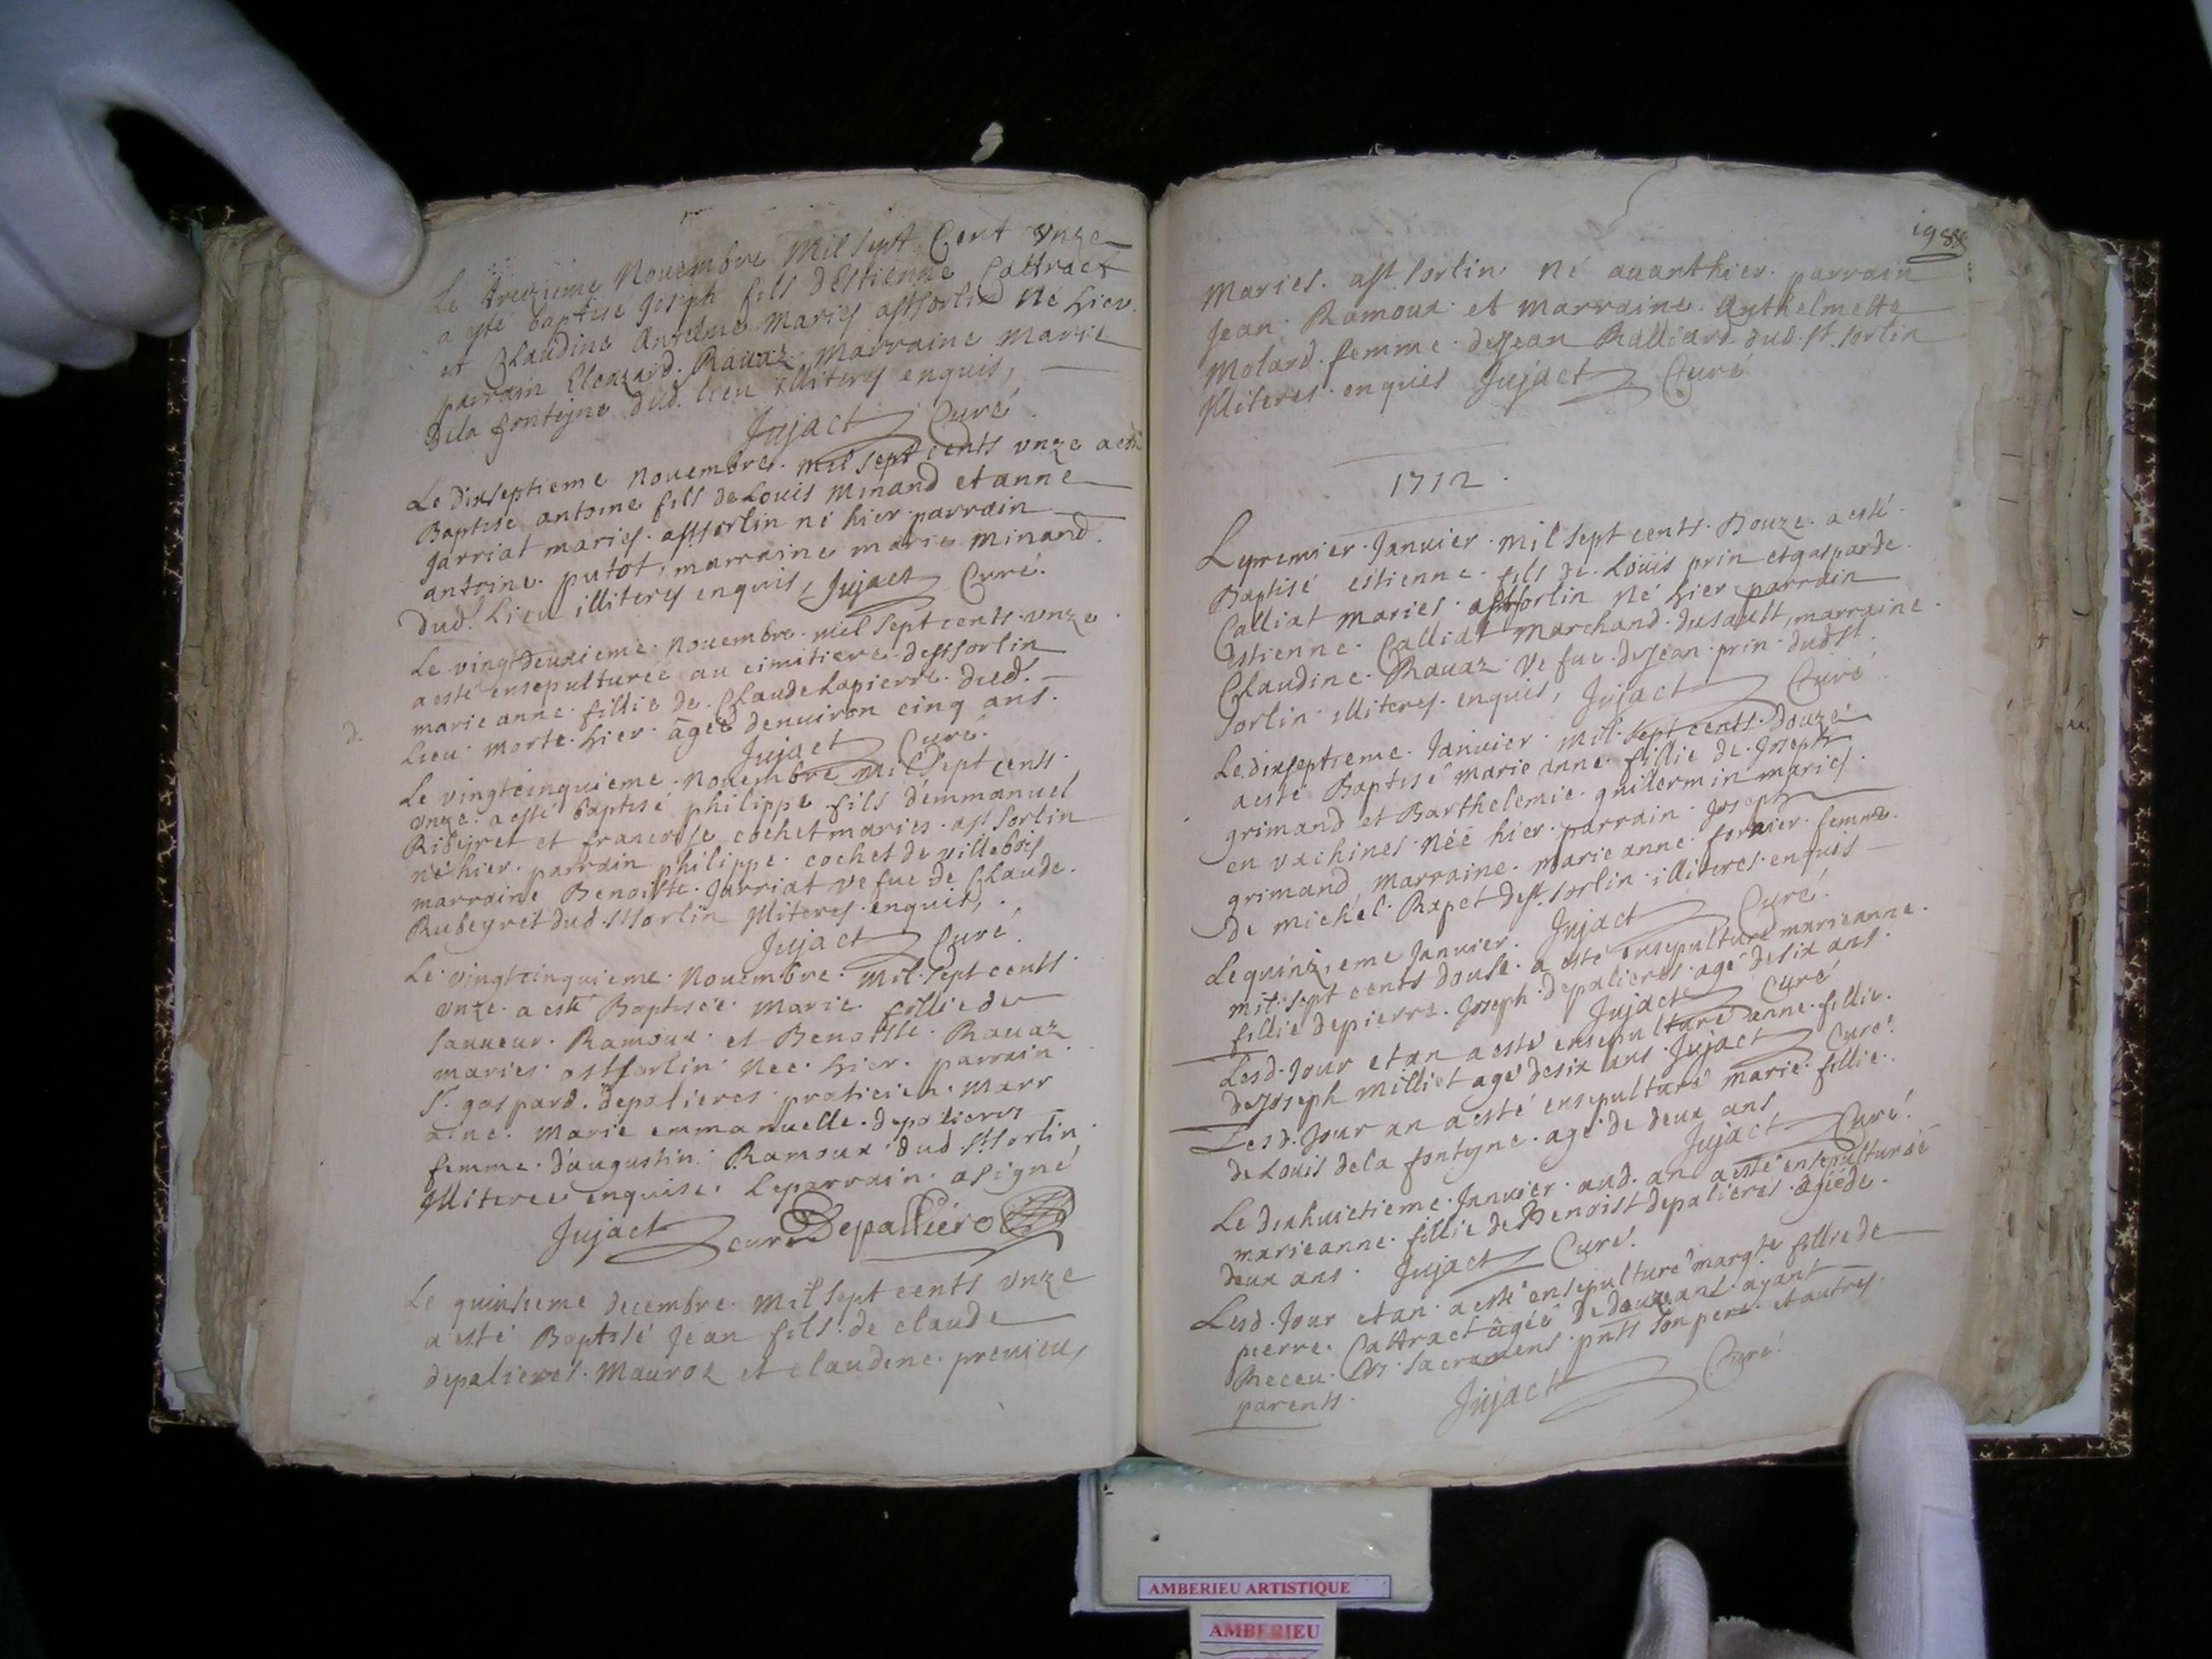 Le treizieme Novembre Mil Sept Cent vnze
a esté baptisé Joseph fils dEstienne Cattract
et Claudine Antelme mariés a st sorlin Né hier
parrain Eleazard Ravaz Marraine Marie
Dela fonteyne dud. lieu illiteres enquis,
Jujact Curé
Le dixseptieme Novembre mil sept cents vnze a esté
Baptisé antoine fils de Louis Minand et anne
Jarriat mariés a st sorlin né hier parrain
antoine putot, marraine marie Minand
dud. Lieu illiteres enquis, Jujact Curé.
Le vingtdeuxieme Novembre mil sept cents vnze
a esté ensepulturée au cimitiere de st sorlin
d. marie anne fillie de Claude Lapierre dud.
Lieu morte hier âgée denviron cinq ans.
Jujact Curé.
Le vingtcinquieme Novembre mil sept cents
vnze a esté baptisé philippe fils démmanuel
Ribeiret et francoise cochet mariés a st Sorlin
né hier parrain philippe cochet de villebois
marraine Benoiste Jarriat vefue de Claude
Rubeyret dud. st sorlin illiteres enquis,
Jujact Curé
Le vingtcinquieme Novembre Mil sept cents
vnze a esté Baptisée Marie fillie de
Sauueur Ramoux et Benoiste Ravaz
mariés a st sorlin Née hier parrain
Sr. gaspard depalieres praticien Marr
aine Marie emmanuelle depalieres
femme d'augustin Ramoux dud. st sorlin
illiteree enquise Leparrain a signé
Jujact curé Depalliere
Le quinsieme decembre Mil sept cents vnze
a esté Baptisé Jean fils de claude
depalieres Mauroz et claudine previeu,
198
Mariés a st sorlin Né avanthier parrain
Jean Ramoux et Marraine Anthelmette
Molard femme de Jean Ralliard dud. st. sorlin
illiteres enquis Jujact Curé
1712.
Le premier Janvier Mil sept cents Douze a esté
Baptisé estienne fils de Louis prin et gasparde
Calliat mariés a st sorlin Né hier parrain
Estienne Calliat Marchand dusault, marraine
Claudine Ravaz Vefue de Jean prin dud st.
sorlin illiteres enquis, Jujact Curé
Le dixseptieme Janvier mil sept cents douze
a esté Baptisé marie anne fillie de Joseph
grimand et Barthelemie guillermin mariés
en vachines née hier parrain Joseph
grimand, marraine marie anne fornier femme
de Michel Rapet de st. sorlin illiteres enquis
Jujact Curé.
Le quinzieme Janvier
mil sept cents douse a esté ensepulturé marieanne
fillie de pierre Joseph depalieres agé de six ans.
Jujact Curé
Lesd. Jour et an a esté ensepulturé anne fillie
de Joseph Milliet agé desix ans Jujact Curé.
Lesd. Jour an a esté ensepulturé Marie fillie
de Louis dela fonteyne agé de deux ans
Jujact Curé.
Le dixhuictieme Janvier aud. an a esté ensepulturée
marieanne fillie de Benoist depalieres âgée de
deux ans Jujact Curé.
Lesd. Jour et an a esté ensepulturé margte fillie de
pierre Cattract âgée De douze ans ayant
Receu les Sacremens pnts son pere et autres
parents. Jujact Curé
AMBERIEU ARTISTIQUE
AMBERIEU